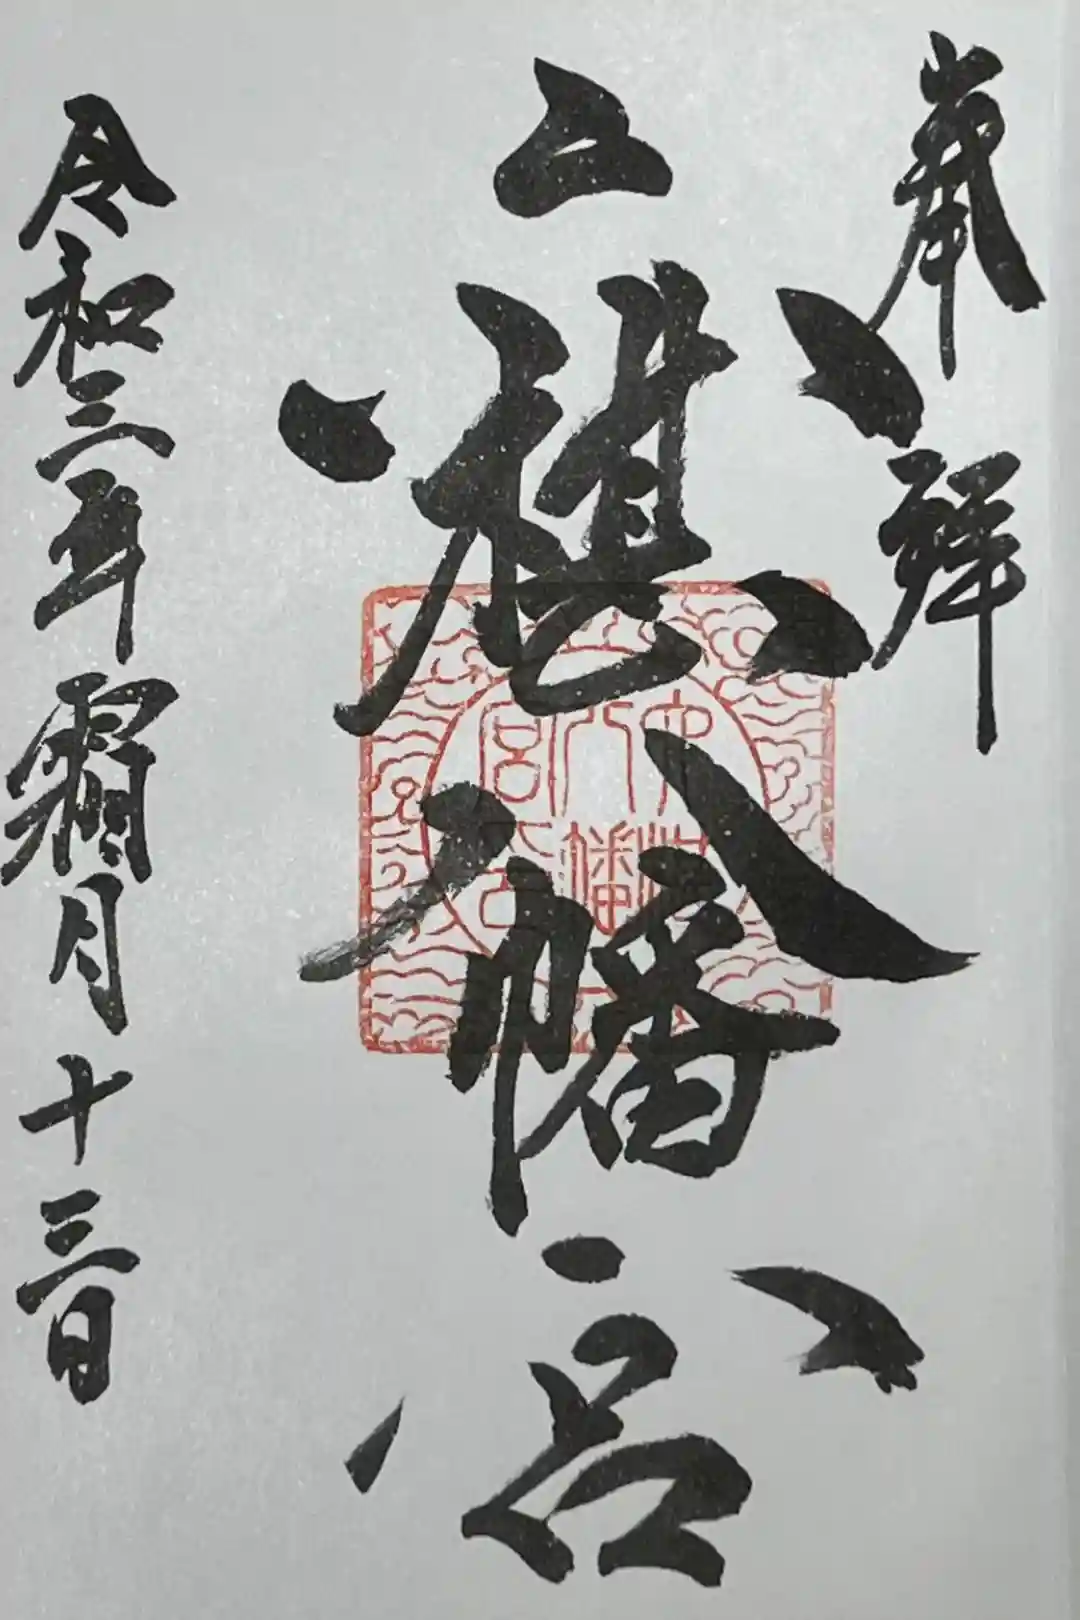 奉拝
八幡宮
令和三年霜月十三日